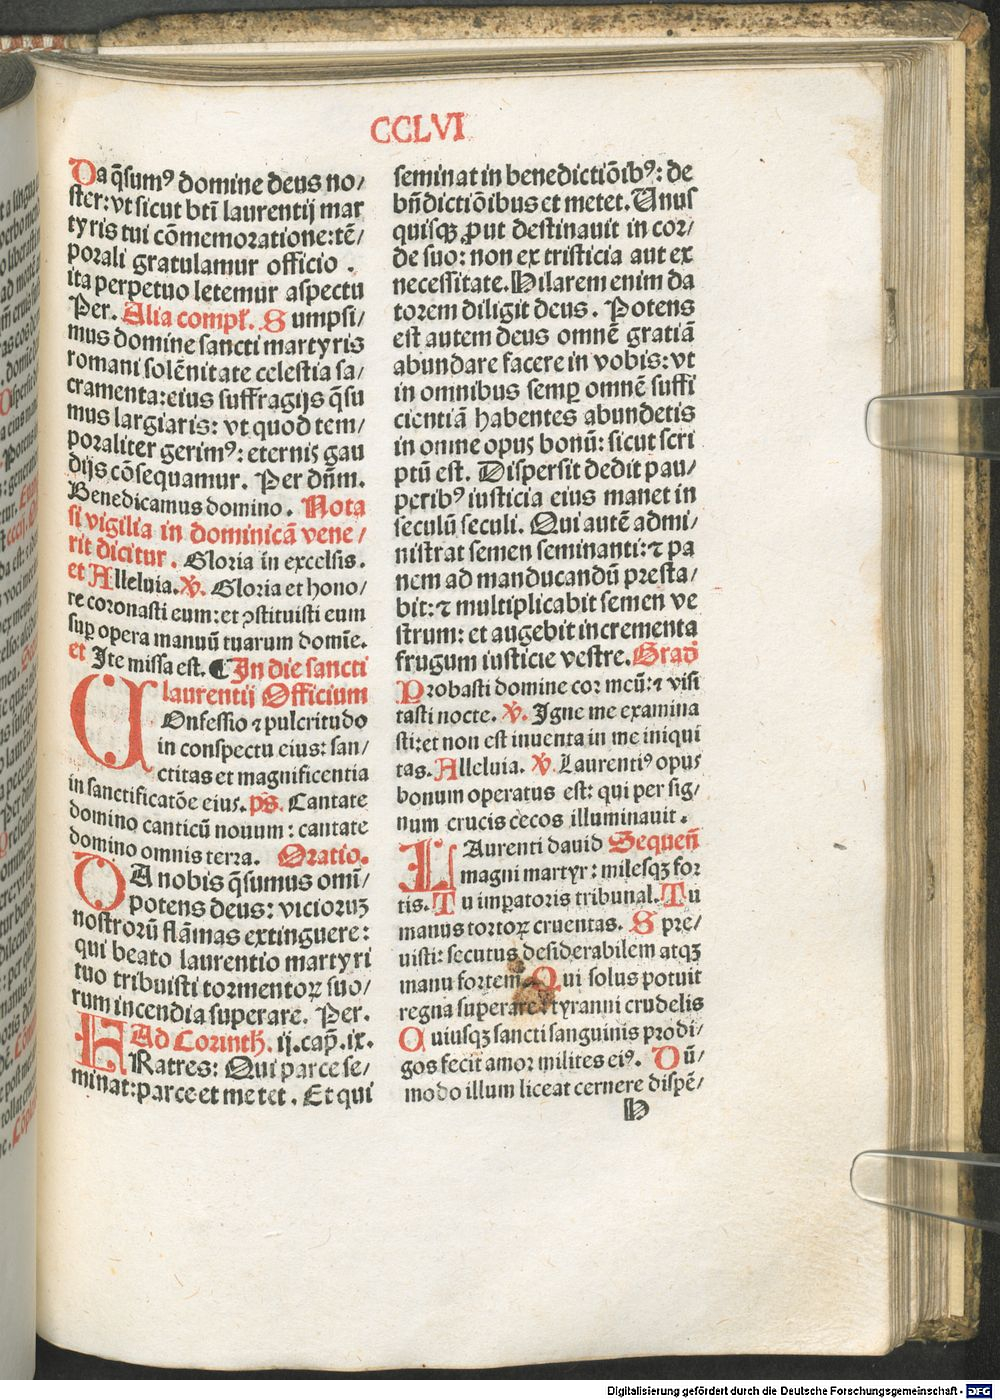 CCLVI
Da q̄sumꝰ domine deus no/
ster: vt sicut btī laurentij mar
tyris tui cōmemoratione: tē/
porali gratulamur officio .
ita perpetuo letemur aspectu
Per. Alia compł. Sumpsi/
mus domine sancti martyris
romani solēnitate celestia sa/
cramenta: eius suffragijs q̄su
mus largiaris: vt quod tem/
poraliter gerimꝰ: eternis gau
dijs cōsequamur. Per dn̄m.
Benedicamus domino. Nota
si vigilia in dominicā vene/
rit dicitur. Gloria in excelsis.
et Alleluia. ℣. Gloria et hono/
re coronasti eum: et ꝯstituisti eum
suꝑ opera manuū tuarum domīe.
et Ite missa est. ¶ In die sancti
laurentij Officium
COnfessio ⁊ pulcritudo
in conspectu eius: san/
ctitas et magnificentia
in sanctificatōe eius. ps. Cantate
domino canticū nouum: cantate
domino omnis terra. Oratio.
DA nobis q̄sumus omī/
potens deus: vicioruꝫ
nostrorū flāmas extinguere:
qui beato laurentio martyri
tuo tribuisti tormentoꝝ suo/
rum incendia superare. Per.
Ad Corinth. ij. cap̄. ix.
FRatres: Qui parce se/
minat: parce et metet. Et qui
seminat in benedictiōibꝰ: de
bn̄dictiōibus et metet. Unus
quisqꝫ ꝓut destinauit in cor/
de suo: non ex tristicia aut ex
necessitate. Hilarem enim da
torem diligit deus. Potens
est autem deus omnē gratiā
abundare facere in vobis: vt
in omnibus semꝑ omnē suffi
cientiā habentes abundetis
in omne opus bonū: sicut scri
ptū est. Dispersit dedit pau/
peribꝰ iusticia eius manet in
seculū seculi. Qui autē admi/
nistrat semen seminanti: ⁊ pa
nem ad manducandū presta/
bit: ⁊ multiplicabit semen ve
strum: et augebit incrementa
frugum iusticie vestre. Grad
Probasti domine cor meū: ⁊ visi
tasti nocte. ℣. Igne me examina
sti: et non est inuenta in me iniqui
tas. Alleluia. ℣. Laurentiꝰ opus
bonum operatus est: qui per sig/
num crucis cecos illuminauit .
LAurenti dauid Sequen̄
magni martyr: milesqꝫ for
tis. Tu imꝑatoris tribunal. Tu
manus tortoꝝ cruentas. Spre/
uisti: secutus desiderabilem atqꝫ
manu fortem. Qui solus potuit
regna superare: tyranni crudelis
Cuiusqꝫ sancti sanguinis prodi/
gos fecit amor milites eiꝰ. Dū/
modo illum liceat cernere dispē/
h
Digitalisierung gefördert durch die Deutsche Forschungsgemeinschaft - DFG